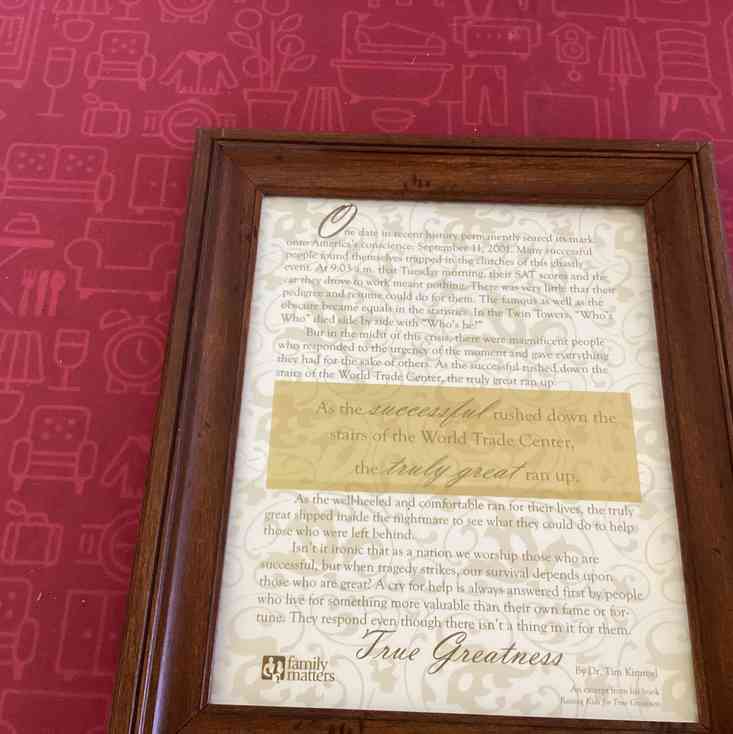 One date in recent history permanently seared its mark
onto America's conscience: September 11, 2001. Many successful
people found themselves trapped in the clutches of this ghastly
event. At 9:03 a.m. that Tuesday morning, their SAT scores and the
car they drove to work meant nothing. There was very little that their
pedigree and resume could do for them. The famous as well as the
obscure became equals in the statistics. In the Twin Towers, "Who's
Who" died side by side with "Who's he?"
But in the midst of this crisis, there were magnificent people
who responded to the urgency of the moment and gave everything
they had for the sake of others. As the successful rushed down the
stairs of the World Trade Center, the truly great ran up.
As the successful rushed down the
stairs of the World Trade Center,
the truly great ran up.
As the well-heeled and comfortable ran for their lives, the truly
great slipped inside the nightmare to see what they could do to help
those who were left behind.
Isn't it ironic that as a nation we worship those who are
successful, but when tragedy strikes, our survival depends upon
those who are great? A cry for help is always answered first by people
who live for something more valuable than their own fame or for-
tune. They respond even though there isn't a thing in it for them.
True Greatness
By Dr. Tim Kimmel
An excerpt from his book
Raising Kids for True Greatness
family
matters